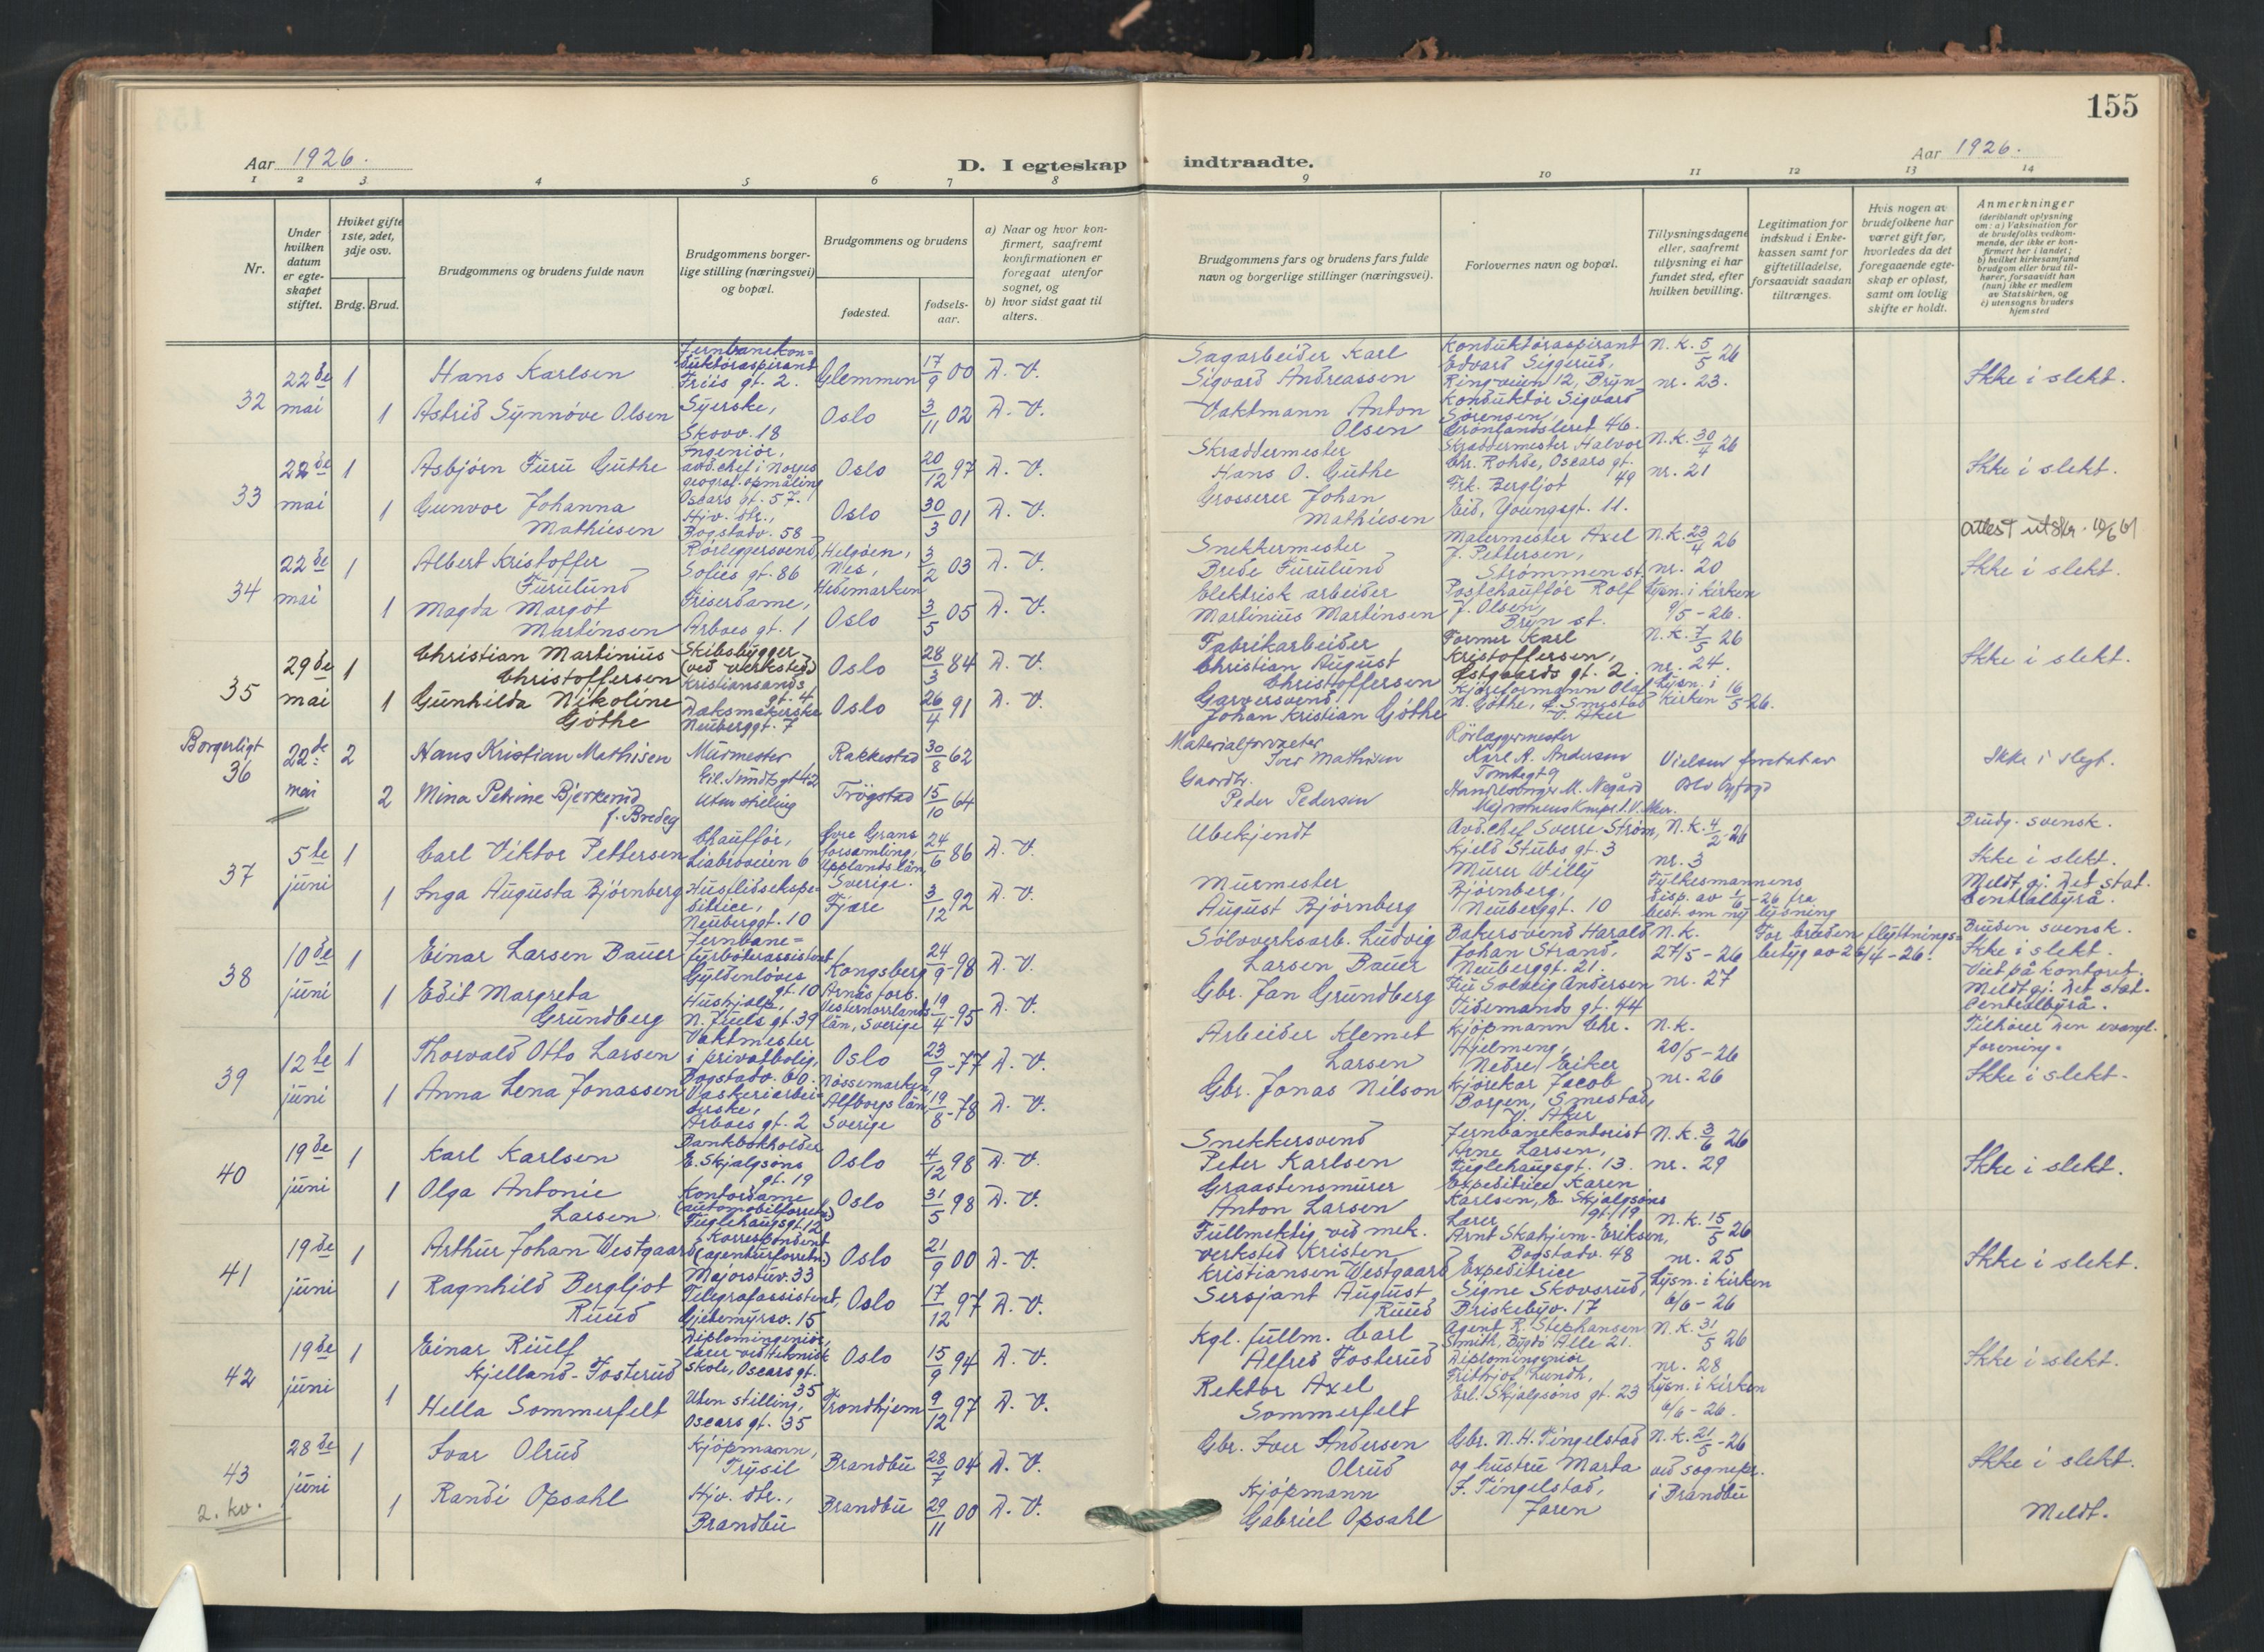 155
Aar 1926.
D. I egteskap indtraadte.
Aar 1926.
1 2 3 4 5 6 7 8 9 10 11 12 13 14
Nr.
Under hvilken datum er egteskapet stiftet.
Hviket gifte 1ste, 2det, 3dje osv.
Brdg. Brud.
Brudgommens og brudens fulde navn
Brudgommens borgerlige stilling (næringsvei) og bopæl.
Brudgommens og brudens
fødested.
fødselsaar.
a) Naar og hvor konfirmert, saafremt konfirmationen er foregaat utenfor sognet, og
b) hvor sidst gaat til alters.
Brudgommens fars og brudens fars fulde navn og borgerlige stillinger (næringsvei).
Forlovernes navn og bopæl.
Tillysningsdagene eller, saafremt tillysning ei har fundet sted, efter hvilken bevilling.
Legitimation for indskud i Enkekassen samt for giftetilladelse, forsaavidt saadan tiltrænges.
Hvis nogen av brudefolkene har været gift før, hvorledes da det foregaaende egteskap er opløst, samt om lovlig skifte er holdt.
Anmerkninger
(deriblandt oplysning om: a) Vaksination for de brudefolks vedkommende, der ikke er konfirmert her i landet;
b) hvilket kirkesamfund brudgom eller brud tilhører, forsaavidt han (hun) ikke er medlem av Statskirken, og
c) utensogns bruders hjemsted
32
22de mai
1 Hans Karlsen
Jernbanekonduktøraspirant
Friis gt. 2.
Glemmen 17/9 00 D. V.
Sagarbeider Karl
Sigvard Andreassen
Konduktøraspirant
Edvard Siggerud,
Ringveien 12, Bryn
N.K. 5/5 26
nr. 23.
Ikke i slekt.
1 Astrid Synnøve Olsen
Syerske,
Skovv. 18
Oslo 3/11 02 D. V.
Vaktmann Anton
Olsen
Konduktør Sigvard
Sørensen,
Grønlandsleret 46.
33
22de mai
1 Asbjørn Furu Guthe
Ingeniør,
avd.chef i Norges
geograf. opmåling
Oscars gt. 57.
Oslo 20/12 97 D. V.
Skræddermester
Hans O. Guthe
Skræddermester Halvor
Chr. Rohde, Oscars gt.
49
N.K. 30/4 26
nr. 21
Ikke i slekt.
1 Gunvor Johanna
Mathiesen
Hjv. dtr.,
Bogstadv. 58
Oslo 30/3 01 D. V.
Grosserer Johan
Mathiesen
Frk. Bergljot
Eid, Youngsgt. 11.
34
22de mai
1 Albert Kristoffer
Furulund
Rørleggersvend,
Sofies gt. 86
Helgøen,
Nes,
Hedemarken
3/2 03 D. V.
Snekkermester
Brede Furulund
Malermester Axel
J. Pettersen,
Strømmen st.
N.K. 23/4 26
nr. 20
Attest utskr.
Ikke i slekt.
1 Magda Margot
Martinsen
Friserdame,
Arboes gt. 1
Oslo 3/5 05 D. V.
Elektrisk arbeider
Martinius Martinsen
Postchauffør Rolf
J. Olsen,
Bryn st.
Lysn. i kirken
9/5-26.
35
29de mai
1 Christian Martinius
Christoffersen
Skibsbygger
(ved verksted)
Kristiansands
gt. 4
Oslo 28/3 84 D. V.
Fabrikarbeider
Christian August
Christoffersen
Former Karl
Kristoffersen,
Østgaards gt. 2.
N.K. 7/5 26
nr. 24.
Ikke i slekt.
1 Gunhilda Nikoline
Göthe
Daksmakerske
Neuberggt. 7
Oslo 26/4 91 D. V.
Garversvend
Johan Kristian Göthe
Kjøreformann Olaf
N. Göthe, Smestad
V. Aker
Lysn. i
kirken 16/5-26.
Borgerligt
36
22de mai
2 Hans Kristian Mathisen
Murmester
Eil. Sundts gt 42
Rakkestad 30/8 62
Materialforvalter
Iver Mathisen
Rørlæggermester
Karl A. Andersen
Tomtegt 9
Vielsen foretat av
Oslo Byfogd
Ikke i slegt.
2 Mina Petrine Bjerkerud
f. Bredeg
Uten stilling
Trøgstad 15/10 64
Gaardbr.
Peder Pedersen
Handelsborger M. Negård
V. Aker.
37
5te juni
1 Carl Viktor Pettersen
Chauffør,
Liabroveien 6
Øvre Grans
forsamling,
Upplands län,
Sverige.
24/6 86 D. V.
Ubekjendt
Avd.chef Sverre Strøm,
Kjeld Stubs gt. 3
N.K. 4/2-26
nr. 3
Brudg. svensk.
Ikke i slekt.
Meldt gj. Det stat.
Centralbyrå.
1 Inga Augusta Bjørnberg
Husflidsekspeditrice,
Neuberggt. 10
Fjære
3/12 92 D. V.
Murmester
August Bjørnberg
Murer Willy
Bjørnberg,
Neuberggt. 10
Fylkesmannens
disp. av 1/6-26 fra
best. om ny lysning
38
10de juni
1 Einar Larsen Bauer
Jernbanefyrbøterassistent
Gyldenløves
gt. 10
Kongsberg 24/9-98 D. V.
Sølvverksarb. Ludvig
Larsen Bauer
Bakersvend Harald
Johan Strand,
Neuberggt. 21.
N.K.
27/5-26
nr. 27
For bruden flyttningsbetyg av 26/4-26.
Bruden svensk.
Ikke i slekt.
Viet på kontoret.
Meldt gj. Det stat.
Centralbyrå.
1 Edit Margreta
Grundberg
Hushjelp,
N. Juels gt. 39
Arnäs förs.
Vesternorrlands
län, Sverige
19/4-95 D. V.
Gbr. Jan Grundberg
Fru Solveig Andersen
Tidemands gt. 44
39
12te juni
1 Thorvald Otto Larsen
Vaktmester
i privatbolig,
Bogstadv. 60.
Oslo 23/9-77 D. V.
Arbeider Klemet
Larsen
Kjøpmann Chr.
Hjelmeng,
Nedre Eiker
N.K.
20/5-26
nr. 26
Tilhører den evangl.
forening.
Ikke i slekt.
1 Anna Lena Jonassen
Vaskeriarbeiderske,
Arboes gt. 2
Nössemarken,
Älfborgs län,
Sverige
19/8-78 D. V.
Gbr. Jonas Nilson
Kjørekar Jacob
Borgen, Smestad,
V. Aker
40
19de juni
1 Karl Karlsen
Bankbokholder
E. Skjalgsøns
gt. 19
Oslo 4/12 98 D. V.
Snekkersvend
Peter Karlsen
Jernbanekontorist
Arne Larsen,
Fuglehaugsgt. 13.
N.K. 3/6 26
nr. 29
Ikke i slekt.
1 Olga Antonie
Larsen
Kontordame
(automobilforretn.)
Fuglehaugsgt. 12
Oslo 31/5 98 D. V.
Graastensmurer
Anton Larsen
Expeditrice Karen
Karlsen, E. Skjalgsøns
gt. 19
41
19de juni
1 Arthur Johan Westgaard
Korrespondent
(agenturforretn.)
Majorstuv. 33
Oslo 21/9 00 D. V.
Fullmektig ved mek.
verksted Kristen
Kristiansen Westgaard
Lærer
Arnt Skahjem-Eriksen,
Bogstadv. 48
N.K. 15/5 26
nr. 25
Ikke i slekt.
1 Ragnhild Bergljot
Ruud
Telegrafassistent,
Gjetemyrsv. 15
Oslo 17/12 97 D. V.
Sersjant August
Ruud
Expeditrice
Signe Skovsrud,
Briskebyv. 17
Lysn. i kirken
6/6-26
42
19de juni
1 Einar Riulf
Kjelland-Fosterud
Diplomingeniør,
lærer ved teknisk
skole, Oscars gt.
35
Oslo 15/9 94 D. V.
Kgl. fullm. Carl
Alfred Fosterud
Agent R. Stephansen
Smith, Bygdø Alle 21.
N.K. 31/5 26
nr. 28
Ikke i slekt.
1 Hella Sommerfelt
Uten stilling,
Oscars gt. 35
Trondhjem 9/12 97 D. V.
Rektor Axel
Sommerfelt
Diplomingeniør
Frithjof Lundh,
Erl. Skjalgsøns gt. 23
Lysn. i kirken
6/6-26.
43
28de juni
1 Ivar Olrud
Kjøpmann,
Trysil
Brandbu 28/7 04 D. V.
Gbr. Iver Andersen
Olrud
Gbr. N.H. Tingelstad
og hustru Marta
F. Tingelstad,
Jaren
N.K. 21/5-26
ved sognepr.
i Brandbu
Ikke i slekt.
1 Randi Opsahl
Hjv. dtr.,
Brandbu
Brandbu 29/11 00 D. V.
Kjøpmann
Gabriel Opsahl
Meldt.
2. kv.